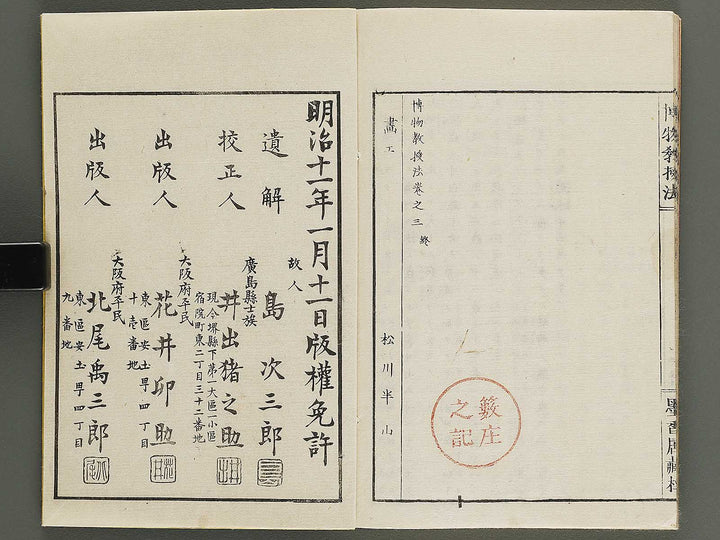 博物教授法
墨香居藏梓
博物教授法卷之三 終
畵工 松川半山
籔庄之記
明治十一年一月十一日版權免許
遺解 故人 島次三郎
校正人 廣島縣士族 井出猪之助
現今堺縣下第一大區一小區
宿院町東二丁目三十二番地
出版人 大阪府平民 花井卯助
東區安土町四丁目
十壱番地
出版人 大阪府平民 北尾禹三郎
東區安土町四丁目
九番地